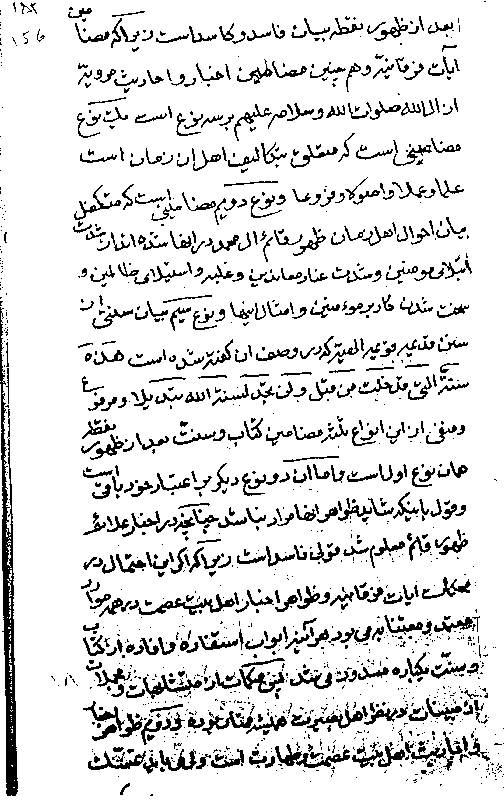 ۱۸۲
156
بعد از ظهور نقطه بیان فاسد و کاسد است زیرا که مضامین
آیات فرقانیه و هم چنین مضامین اخبار و احادیث مرویه
از آل الله صلوات الله و سلامه علیهم بر سه نوع است یک نوع
مضامینی است که متعلق بتکالیف اهل آن زمان است
علما و عملا و اصولا و فروعا و نوع دویم مضامینی است که متکفل
بیان احوال اهل زمان ظهور قائم آل محمد در آنها شده از شدت
ابتلای مومنین و شدت عناد معاندین و غلبه و استیلای ظالمین و
سخت شدن کار بر مومنین و امثال اینها و نوع سیم بیان سنتی از
سنن قدیمه قویمه الهیه که در وصف آن گفته شده است هذه
سنة الله التی قد خلت من قبل و لن تجد لسنة الله تبدیلا و مرفوع
و منفی از این انواع ثلثه مضامین کتاب و سنت بعد از ظهور نقطه
همان نوع اول است و اما آن دو نوع دیگر بر اعتبار خود باقی است
و قول باینکه شاید ظواهر آنها مراد نباشد چنانچه در اخبار علائم
ظهور قائم معلوم شد قولی فاسد است زیرا که اگر این احتمال در
محکمات آیات فرقانیه و ظواهر اخبار اهل بیت عصمت در همه موارد
معتد و معتنابه می بود هر آینه ابواب استفاده و افاده از کتاب
و سنت یکباره مسدود می شد پس محکمات از متشابهات و مجملات
از مبینات در نظر اهل بصیرت ممتاز بوده و ظواهر
اهل بیت عصمت و طهارت است
۱۸۱